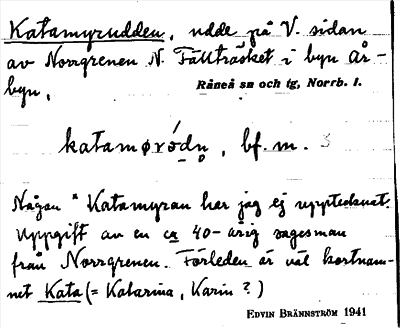 Katamyrudden, udde på V. sidan
av Norrgrenen N. Fällträsket i byn År-
byn,
Råneå sn och tg, Norrb. l.
katamøródn̥, bf. m. 3
Någon *Katamyran har jag ej upptecknat.
Uppgift av en ca 40-årig sagesman
från Norrgrenen. Förleden är väl kortnam-
net Kata (= Katarina, Karin?)
EDVIN BRÄNNSTRÖM 1941